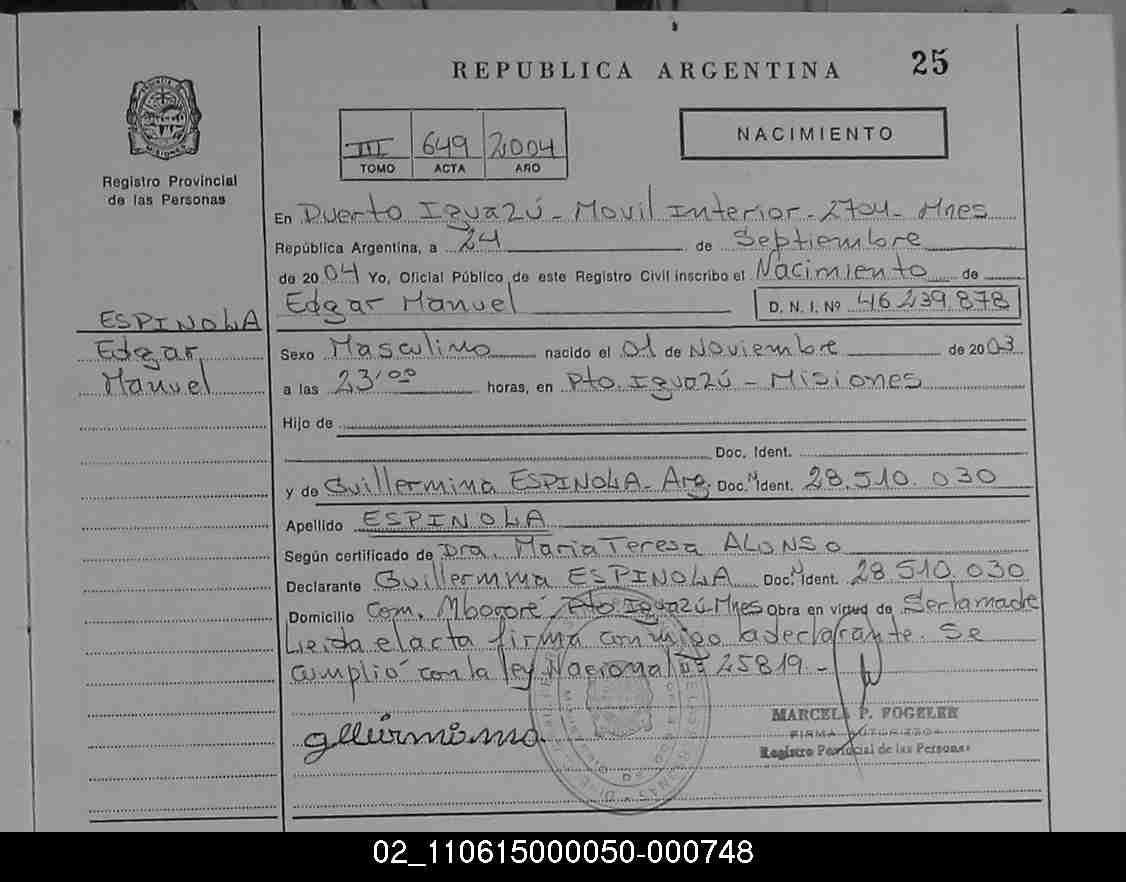 REPUBLICA ARGENTINA 25
III 649 2004
TOMO ACTA AÑO
NACIMIENTO
Registro Provincial
de las Personas
ESPINOLA
Edgar
Manuel
En Puerto Iguazú - Movil Interior - 2704 - Mnes
República Argentina, a 24 de Septiembre
de 2004 Yo, Oficial Público de este Registro Civil inscribo el Nacimiento de
Edgar Manuel D. N. I. Nº 46.239.878
Sexo Masculino nacido el 01 de Noviembre de 2003
a las 23'00 horas, en Pto. Iguazú - Misiones
Hijo de
Doc. Ident.
y de Guillermina ESPINOLA - Arg. Doc. Ident. 28.510.030
Apellido ESPINOLA
Según certificado de Dra. Maria Teresa ALONSO
Declarante Guillermina ESPINOLA Doc. Ident. 28 510.030
Domicilio Com. Mbororé Pto Iguazú-Mnes Obra en virtud de Ser la madre
Leida el acta firma conmigo la declarante. Se
cumplió con la ley Nacional Nº 25819 -
MARCELA P. FOGELER
FIRMA AUTORIZADA
Registro Provincial de las Personas
02_110615000050-000748